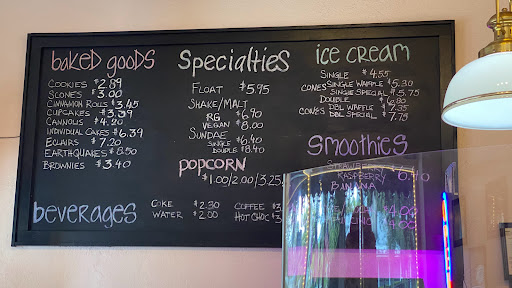 baked goods
COOKIES $2.89
SCONES $3.00
CINNAMON ROLLS $3.45
CUPCAKES $3.99
CANNOLIS $4.20
INDIVIDUAL CAKES $6.39
ECLAIRS $7.20
EARTHQUAKES $8.50
BROWNIES $3.40
Specialties
FLOAT $5.95
SHAKE/MALT
RG $6.90
VEGAN $8.00
SUNDAE
SINGLE $6.40
DOUBLE $8.40
POPCORN
$1.00/2.00/3.25
ice cream
SINGLE $4.55
CONES SINGLE WAFFLE $5.30
SINGLE SPECIAL $5.75
DOUBLE $6.80
CONES DBL WAFFLE $7.35
DBL SPECIAL $7.75
Smoothies
RASPBERRY 6.40
BANANA
beverages
COKE $2.30
WATER $2.00
COFFEE
HOT CHOC